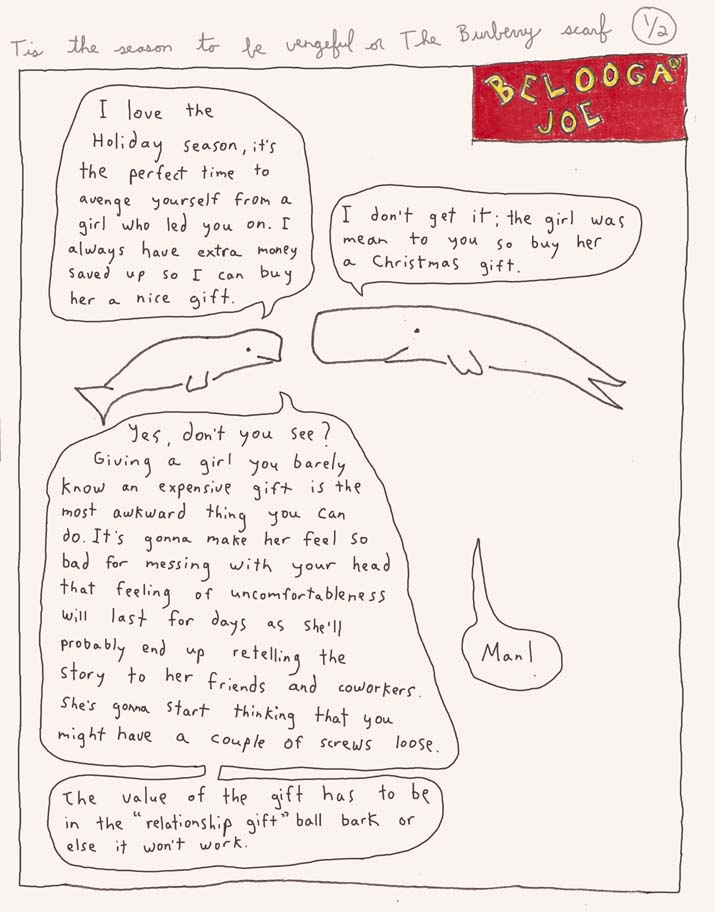 Tis the season to be vengeful or The Burberry scarf 1/2
BELOOGA
JOE
I love the
Holiday season, it's
the perfect time to
avenge yourself from a
girl who led you on. I
always have extra money
saved up so I can buy
her a nice gift.
I don't get it; the girl was
mean to you so buy her
a Christmas gift.
Yes, don't you see?
Giving a girl you barely
know an expensive gift is the
most awkward thing you can
do. It's gonna make her feel so
bad for messing with your head
that feeling of uncomfortableness
will last for days as she'll
probably end up retelling the
story to her friends and coworkers.
She's gonna start thinking that you
might have a couple of screws loose.
Man!
The value of the gift has to be
in the "relationship gift" ball bark or
else it won't work.